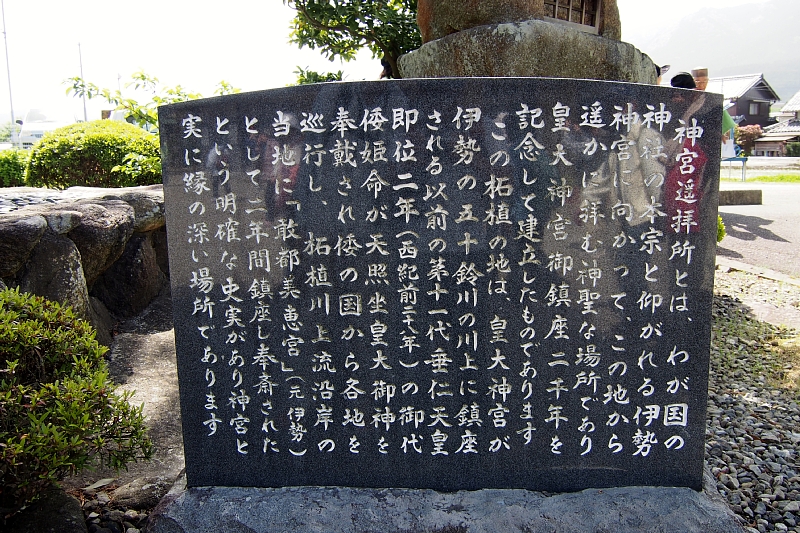 神宮遥拝所とは、わが国の
神社の本宗と仰がれる伊勢
神宮に向かって、この地から
遥かに拝む神聖な場所であり
皇大神宮御鎮座二千年を
記念して建立したものであります
この柘植の地は、皇大神宮が
伊勢の五十鈴川の川上に鎮座
される以前の第十一代垂仁天皇
即位二年（西紀前二十八年）の御代
倭姫命が天照坐皇大御神を
奉戴され倭の国から各地を
巡行し 柘植川上流沿岸の
当地に「敢都美恵宮」（元伊勢）
として二年間鎮座し奉斎された
という明確な史実があり神宮と
実に縁の深い場所であります